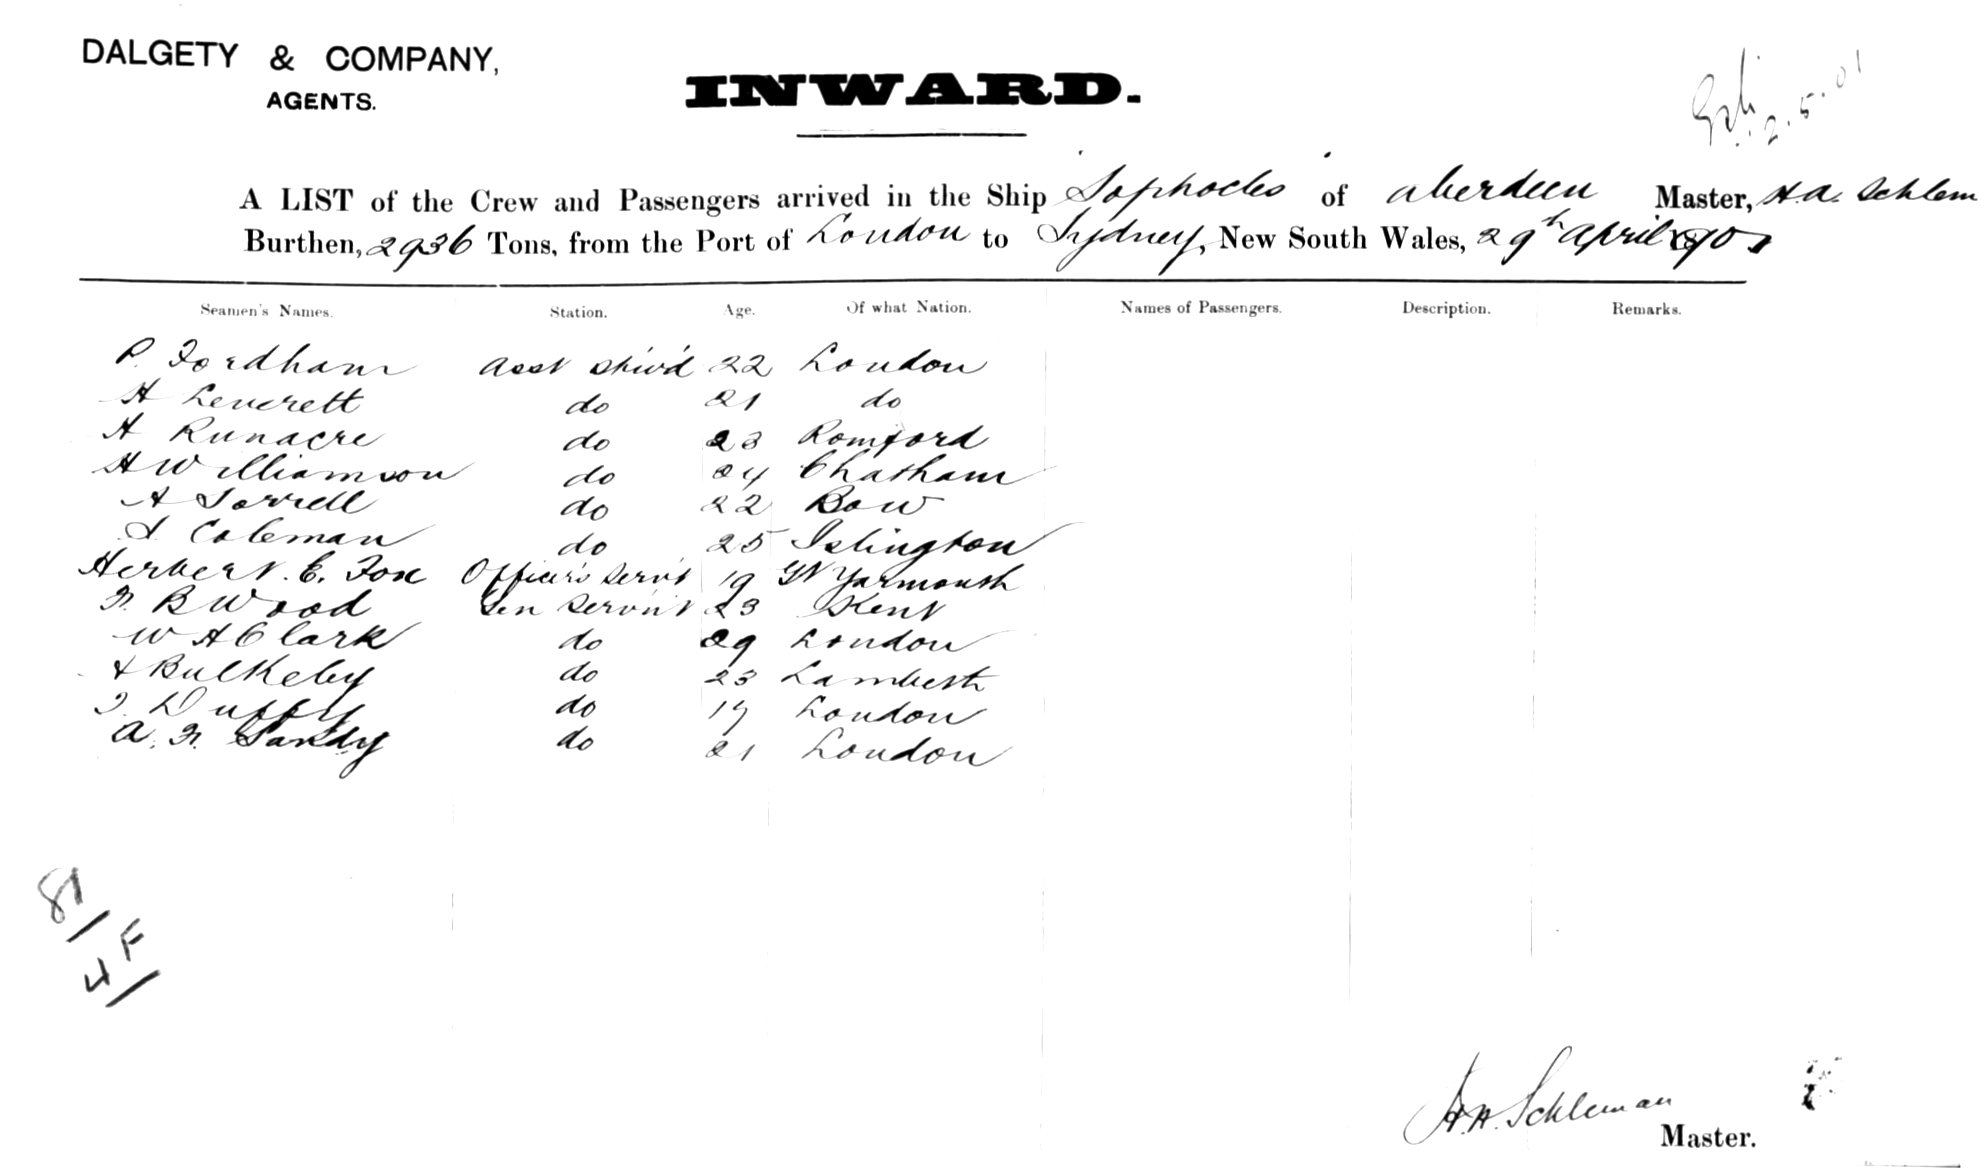 DALGETY & COMPANY,
AGENTS.
INWARD.
2.5.01
A LIST of the Crew and Passengers arrived in the Ship Sophocles of Aberdeen Master, H.A. Schlem
Burthen, 2936 Tons, from the Port of London to Sydney, New South Wales, 29th April 1901
Seamen's Names. Station. Age. Of what Nation. Names of Passengers. Description. Remarks.
P. Fordham Asst Stew'd 22 London
H Leverett do 21 do
H Runacre do 23 Romford
H Williamson do 24 Chatham
A Torrell do 22 Bow
Coleman do 25 Islington
Herbert. E. Fox Officer's Serv't 19 Gt Yarmouth
F. B Wood Gen Serv't 23 Kent
W H Clark do 29 London
Bulkeley do 23 Lambeth
Duffy do 17 London
A. F. Sandy do 21 London
81
4 F
H.A. Schleman
Master.